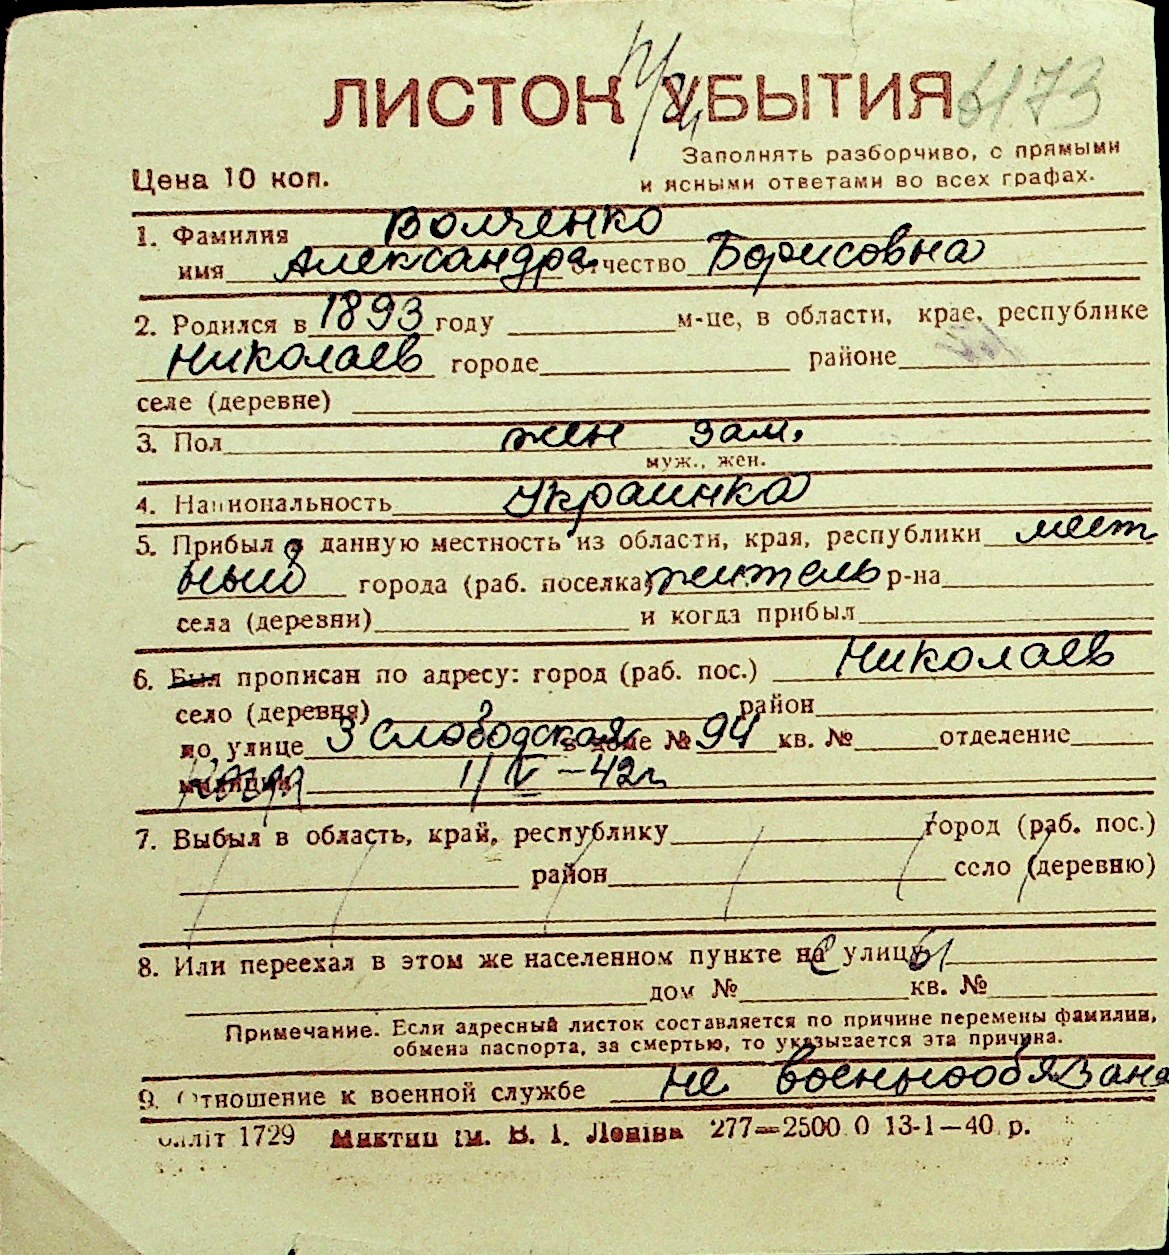 ЛИСТОК УБЫТИЯ 6173
Заполнять разборчиво, с прямыми
Цена 10 коп. и ясными ответами во всех графах.
1. Фамилия Волченко
имя Александра отчество Борисовна
2. Родился в 1893 году м-це, в области, крае, республике
Николаев городе районе
селе (деревне)
3. Пол жен зам.
муж., жен.
4. Национальность Украинка
5. Прибыл в данную местность из области, края, республики мест
ный города (раб. поселка) житель р-на
села (деревни) и когда прибыл
6. Был прописан по адресу: город (раб. пос.) Николаев
село (деревня) район
по улице 3 Слободская в доме № 94 кв. № отделение
милиции 1/IV – 42 г.
7. Выбыл в область, край, республику город (раб. пос.)
район село (деревню)
8. Или переехал в этом же населенном пункте на улицу
дом № кв. №
Примечание. Если адресный листок составляется по причине перемены фамилии,
обмена паспорта, за смертью, то указывается эта причина.
9. Отношение к военной службе не военнообязана
1729 ім. В. І. Леніна 277—2500.0 13-1—40 р.